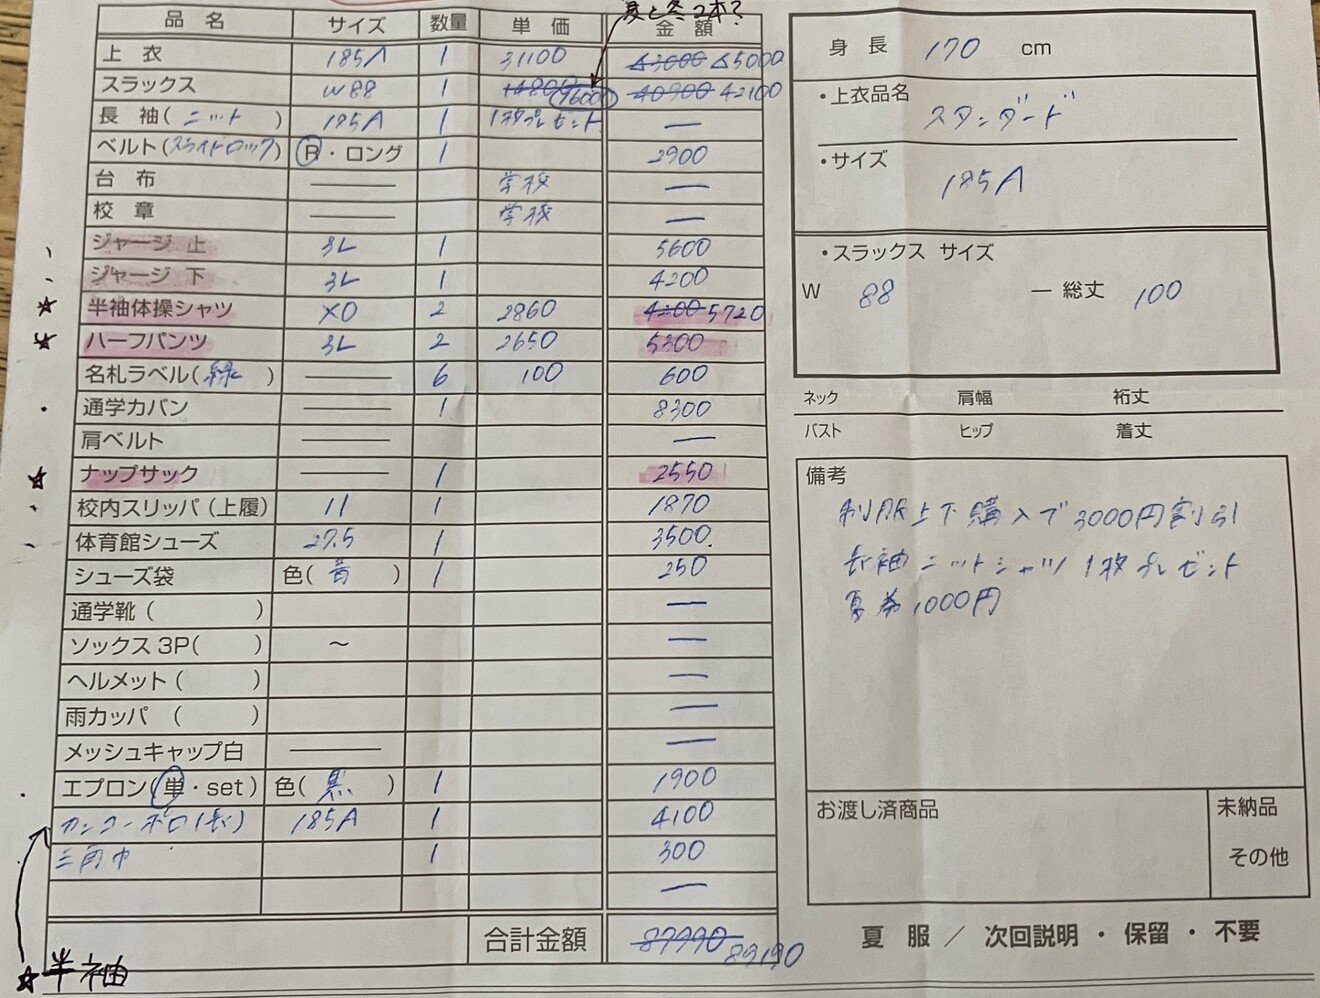 夏と冬2本?
品 名 サイズ 数量 単 価 金 額
上 衣 185A 1 31100 △3000 △5000
スラックス W88 1 14800 16000 40900 42100
長 袖(ニット) 185A 1 1枚プレゼント ー
ベルト(スライドロック) R・ロング 1 2900
台 布 ー 学校 ー
校 章 ー 学校 ー
ジャージ 上 3L 1 5600
ジャージ 下 3L 1 4200
☆ 半袖体操シャツ XO 2 2860 4200 5720
☆ ハーフパンツ 3L 2 2650 5300
名札ラベル(緑) ー 6 100 600
通学カバン ー 1 8300
肩ベルト ー ー
☆ ナップサック ー 1 2550
校内スリッパ(上履) 11 1 1870
体育館シューズ 27.5 1 3500.
シューズ袋 色(青) 1 250
通学靴( ) ー
ソックス3P( ) 〜 ー
ヘルメット( ) ー
雨カッパ ( ) ー
メッシュキャップ白 ー ー
エプロン(単・set) 色(黒) 1 1900
カンコーポロ(長) 185A 1 4100
三角巾 1 300
ー
合計金額 87990 89190
☆半袖
身 長 170 cm
・上衣品名
スタンダード
・サイズ
185A
・スラックス サイズ
W 88 ー 総丈 100
ネック 肩幅 裄丈
バスト ヒップ 着丈
備考
制服上下購入で3000円割引
長袖ニットシャツ1枚プレゼント
夏券1000円
お渡し済商品 未納品
その他
夏 服 / 次回説明 ・ 保留 ・ 不要